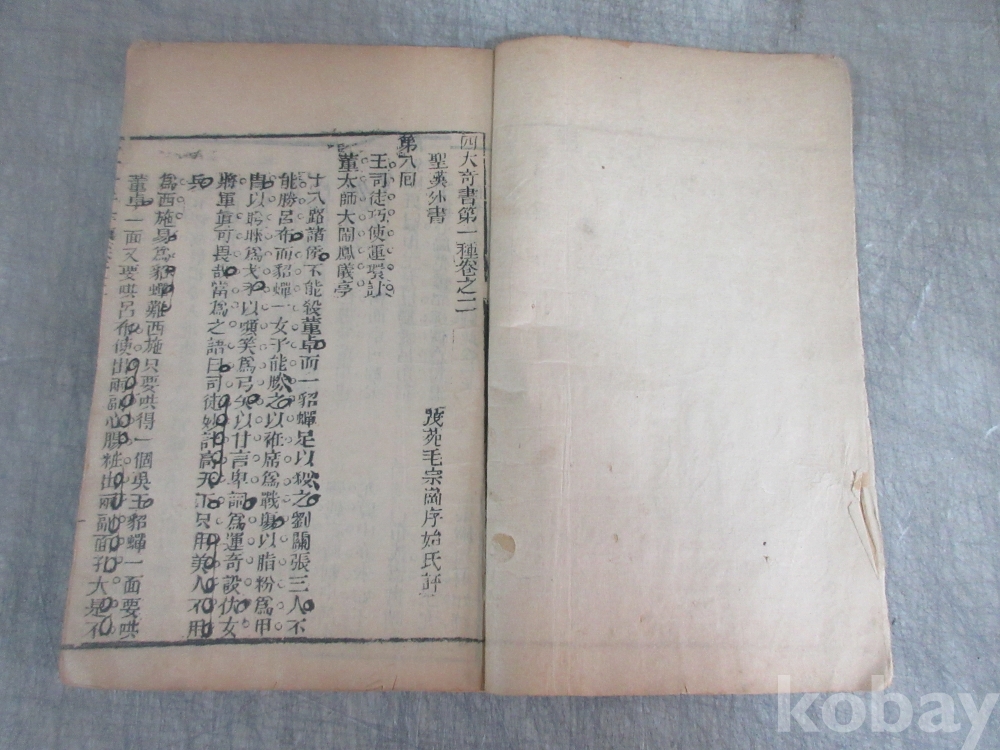 四大奇書第一種卷之二
聖歎外書
茂苑毛宗崗序始氏評
第八回
王司徒巧使連環計
董太師大鬧鳳儀亭
十八路諸侯不能殺董卓而一貂蟬足以殺之劉關張三人不
能勝呂布而貂蟬一女子能勝之以衽席爲戰場以脂粉爲甲
冑以盼睞爲戈矛以嚬笑爲弓矢以甘言卑詞爲運奇設伏女
將軍眞可畏哉當爲之語曰司徒妙計高天下只用美人不用
兵
爲西施易爲貂蟬難西施只要哄得一個吳王貂蟬一面要哄
董卓一面又要哄呂布使出兩副心腸粧出兩副面孔大是不
kobay